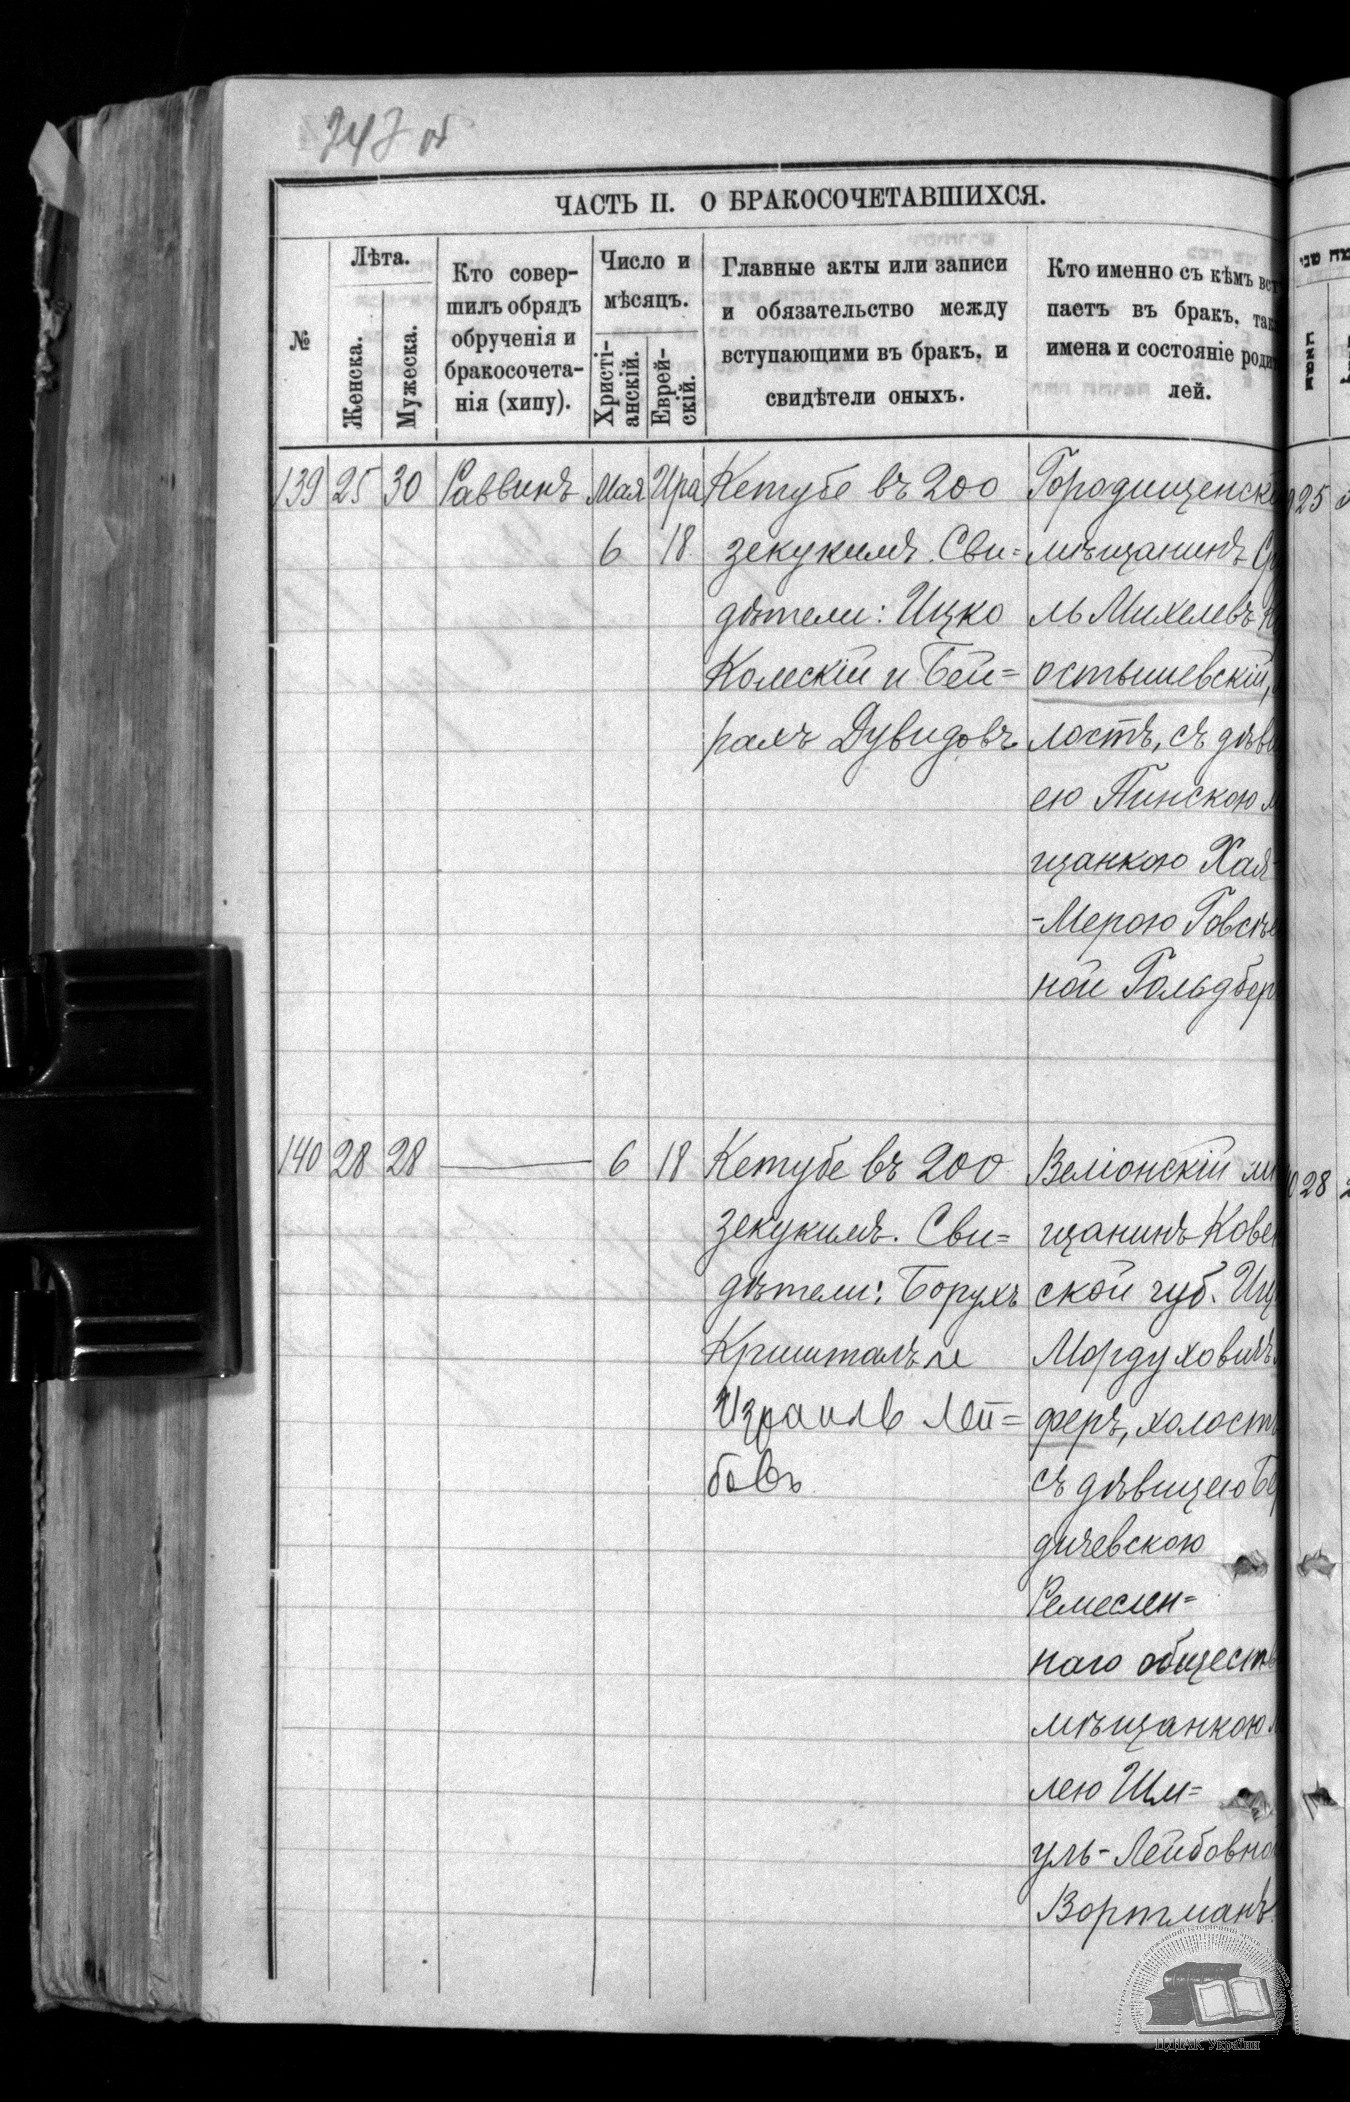 747 об
ЧАСТЬ II. О БРАКОСОЧЕТАВШИХСЯ.
№
Лѣта.
Женска.
Мужеска.
Кто совер-
шилъ обрядъ
обрученія и
бракосочета-
нія (хипу).
Число и
мѣсяцъ.
Христі-
анскій.
Еврей-
скій.
Главные акты или записи
и обязательство между
вступающими въ бракъ, и
свидѣтели оныхъ.
Кто именно съ кѣмъ вст
паетъ въ бракъ, так
имена и состояніе роди
лей.
139 25 30 Раввинъ Мая Ира
6 18
Кетубе въ 200
зекукимъ. Сви=
дѣтели: Ицко
Комскій и Бей=
рахъ Дувидовъ
Городищенск
мѣщанинъ Ср
ль Михелевъ К
остышевскій,
лостъ, съ дѣви
ею Пинскою м
щанкою Хая-
-Мерою Говсѣе
ной Гольдбер
140 28 28 6 18
Кетубе въ 200
зекукимъ. Сви=
дѣтели: Борухъ
Кришталъ и
Израиль Лей=
бовъ
Веліонскій мѣ
щанинъ Ковен
ской губ. Иц
Мордуховичъ
феръ, холостъ
съ дѣвицею Бер
дичевскою
Ремеслен=
наго обществ
мѣщанкою
лею Шм=
уль-Лейбовно
Вортманъ.
25
28
ЦДІАК України